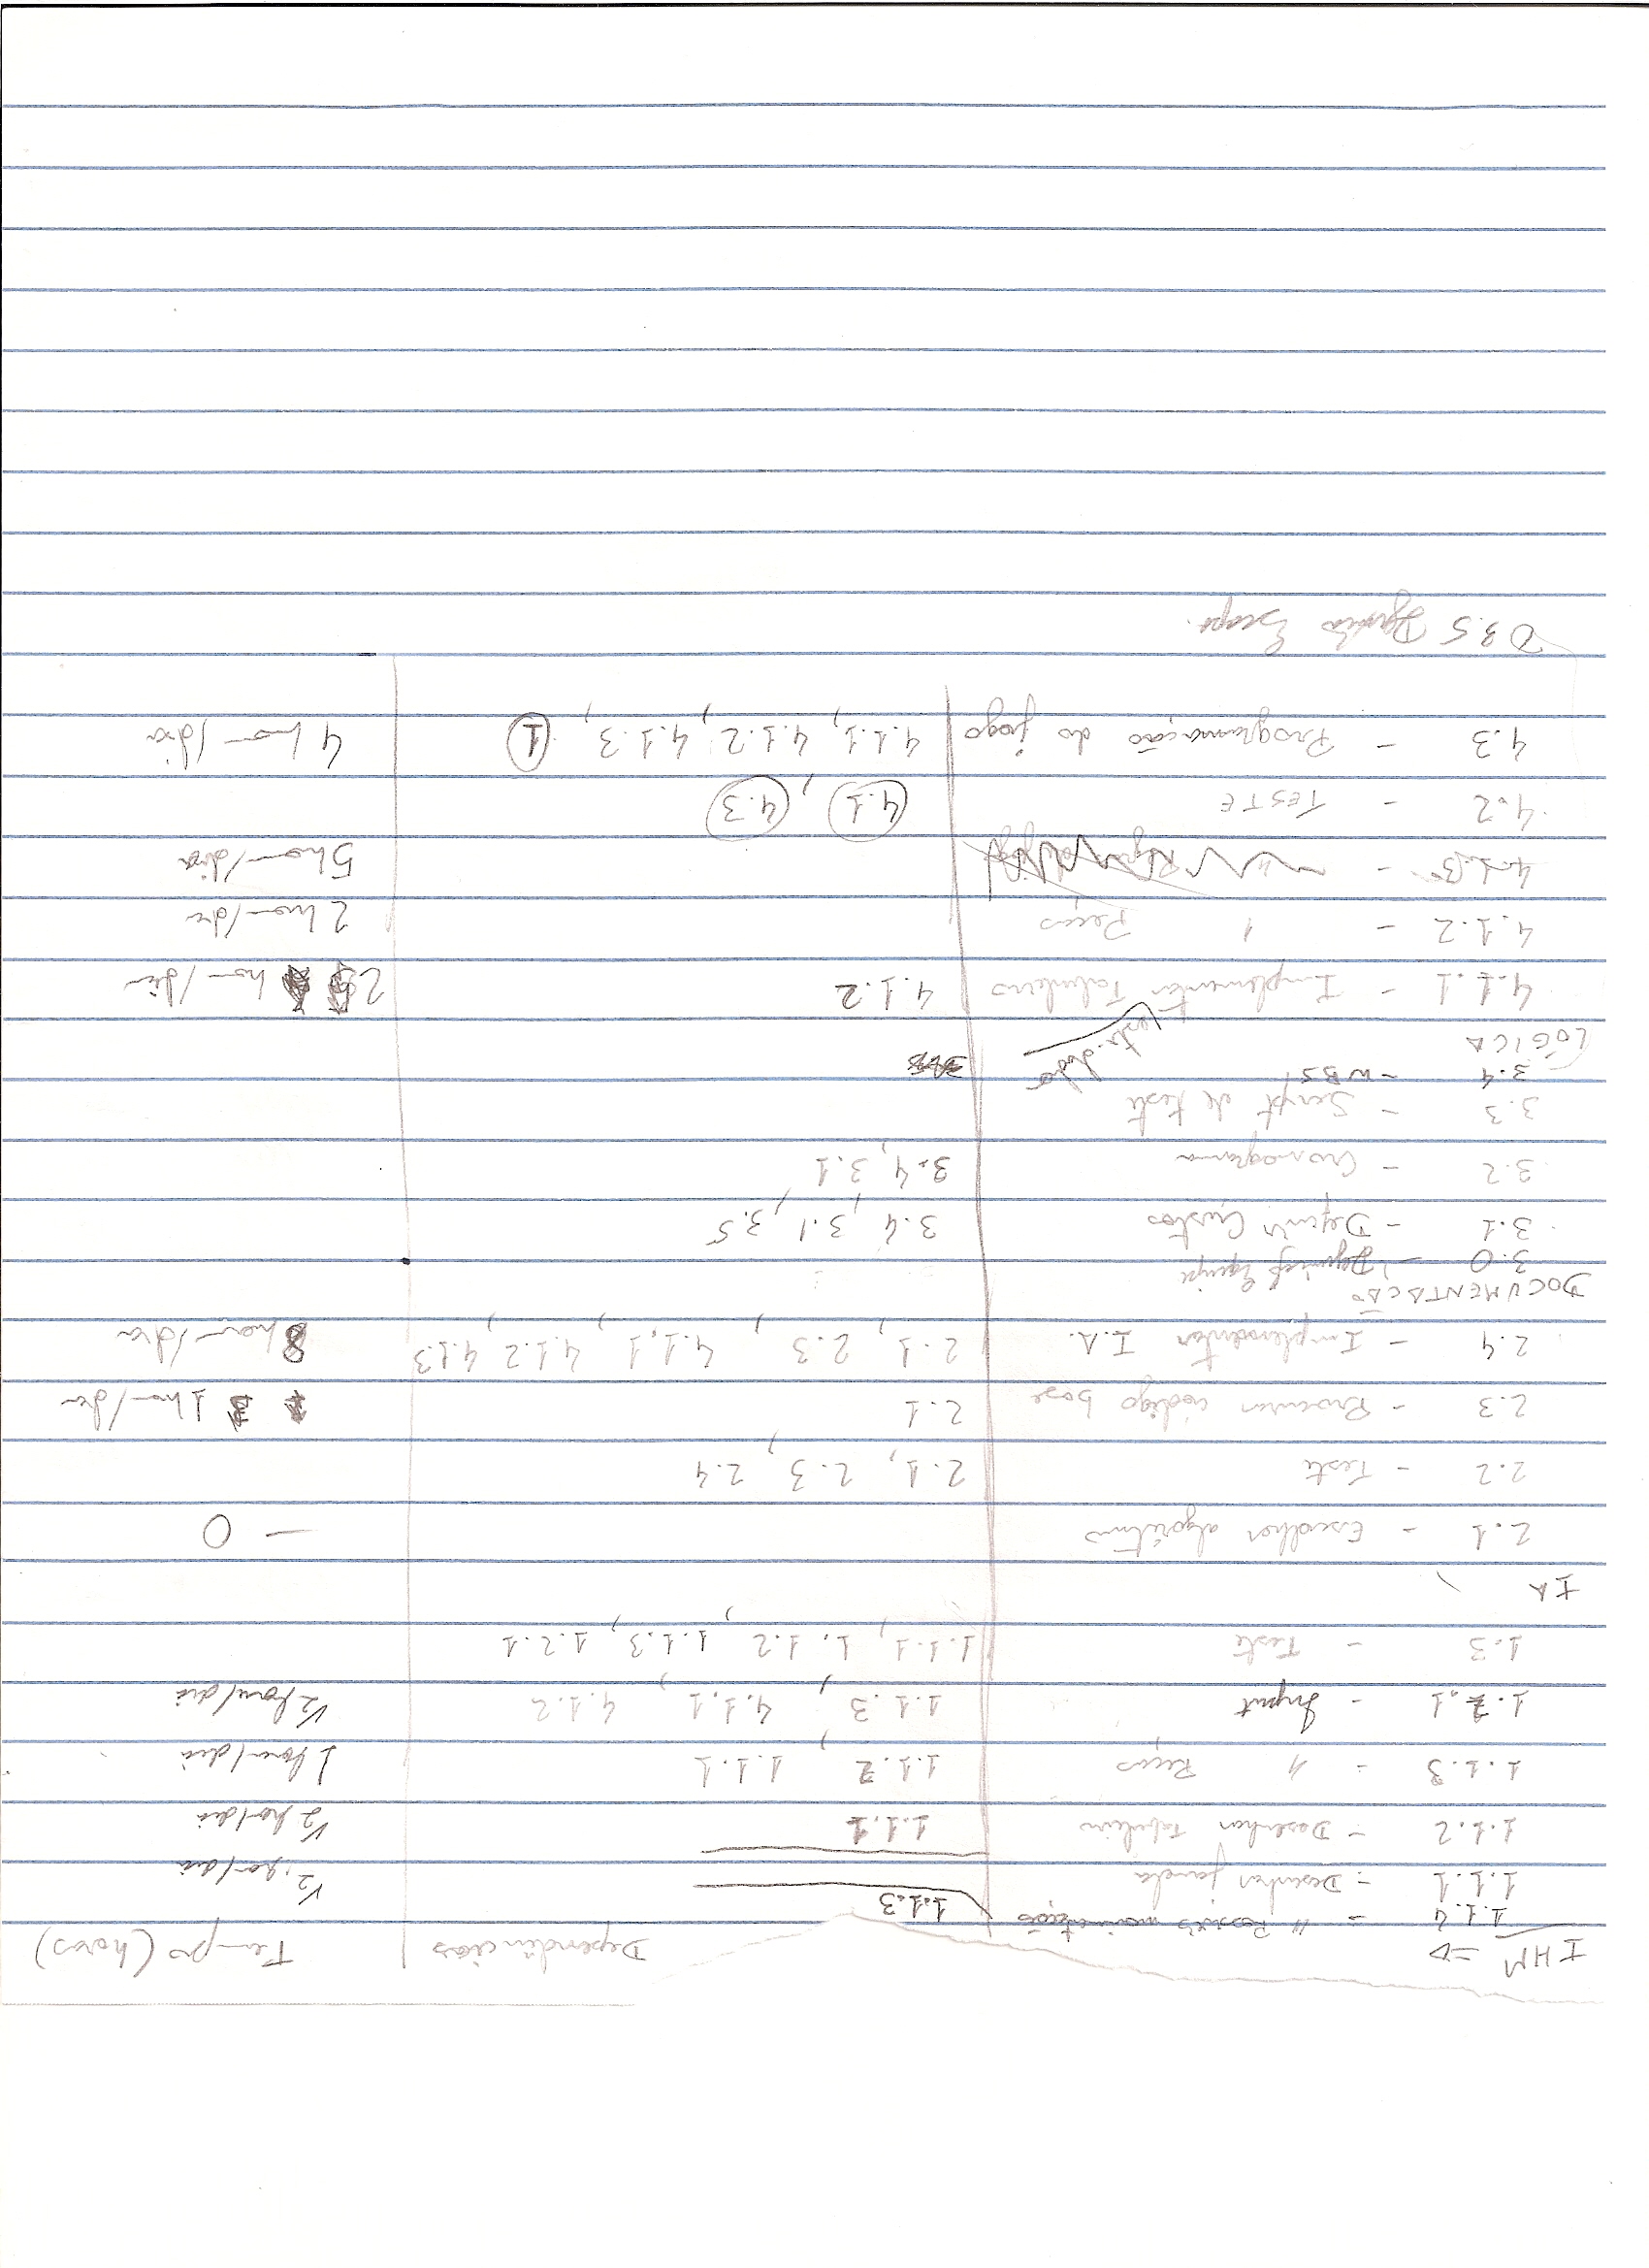 IHM => Dependências Tempo (horas)
1.1.4 - " Possíveis movimentações 1.1.3
1.1.1 - Desenhar janela 1/2 hora/dia
1.1.2 - Desenhar Tabuleiro 1.1.1 1/2 hora/dia
1.1.3 - " Peças 1.1.2, 1.1.1 1 hora/dia
1.2.1 - Input 1.1.3, 4.1.1, 4.1.2 1/2 hora/dia
1.3 - Teste 1.1.1, 1.1.2, 1.1.3, 1.2.1
IA
2.1 - Escolher algorítmo — 0
2.2 - Teste 2.1, 2.3, 2.4
2.3 - Procurar código base 2.1 1 hora/dia
2.4 - Implementar I.A. 2.1, 2.3, 4.1.1, 4.1.2, 4.1.3 8 hora/dia
DOCUMENTAÇÃO
3.0 - Equipe
3.1 - Definir Custos 3.4, 3.1, 3.5
3.2 - Cronograma 3.4, 3.1
3.3 - Script de teste
3.4 - WBS
LÓGICA
4.1.1 - Implementar Tabuleiro 4.1.2 2 hora/dia
4.1.2 - " Peças 2 hora/dia
4.1.3 - 5 hora/dia
4.2 - TESTE 4.1, 4.3
4.3 - Programação do jogo 4.1.1, 4.1.2, 4.1.3, 1 4 hora/dia
3.5 Escopo